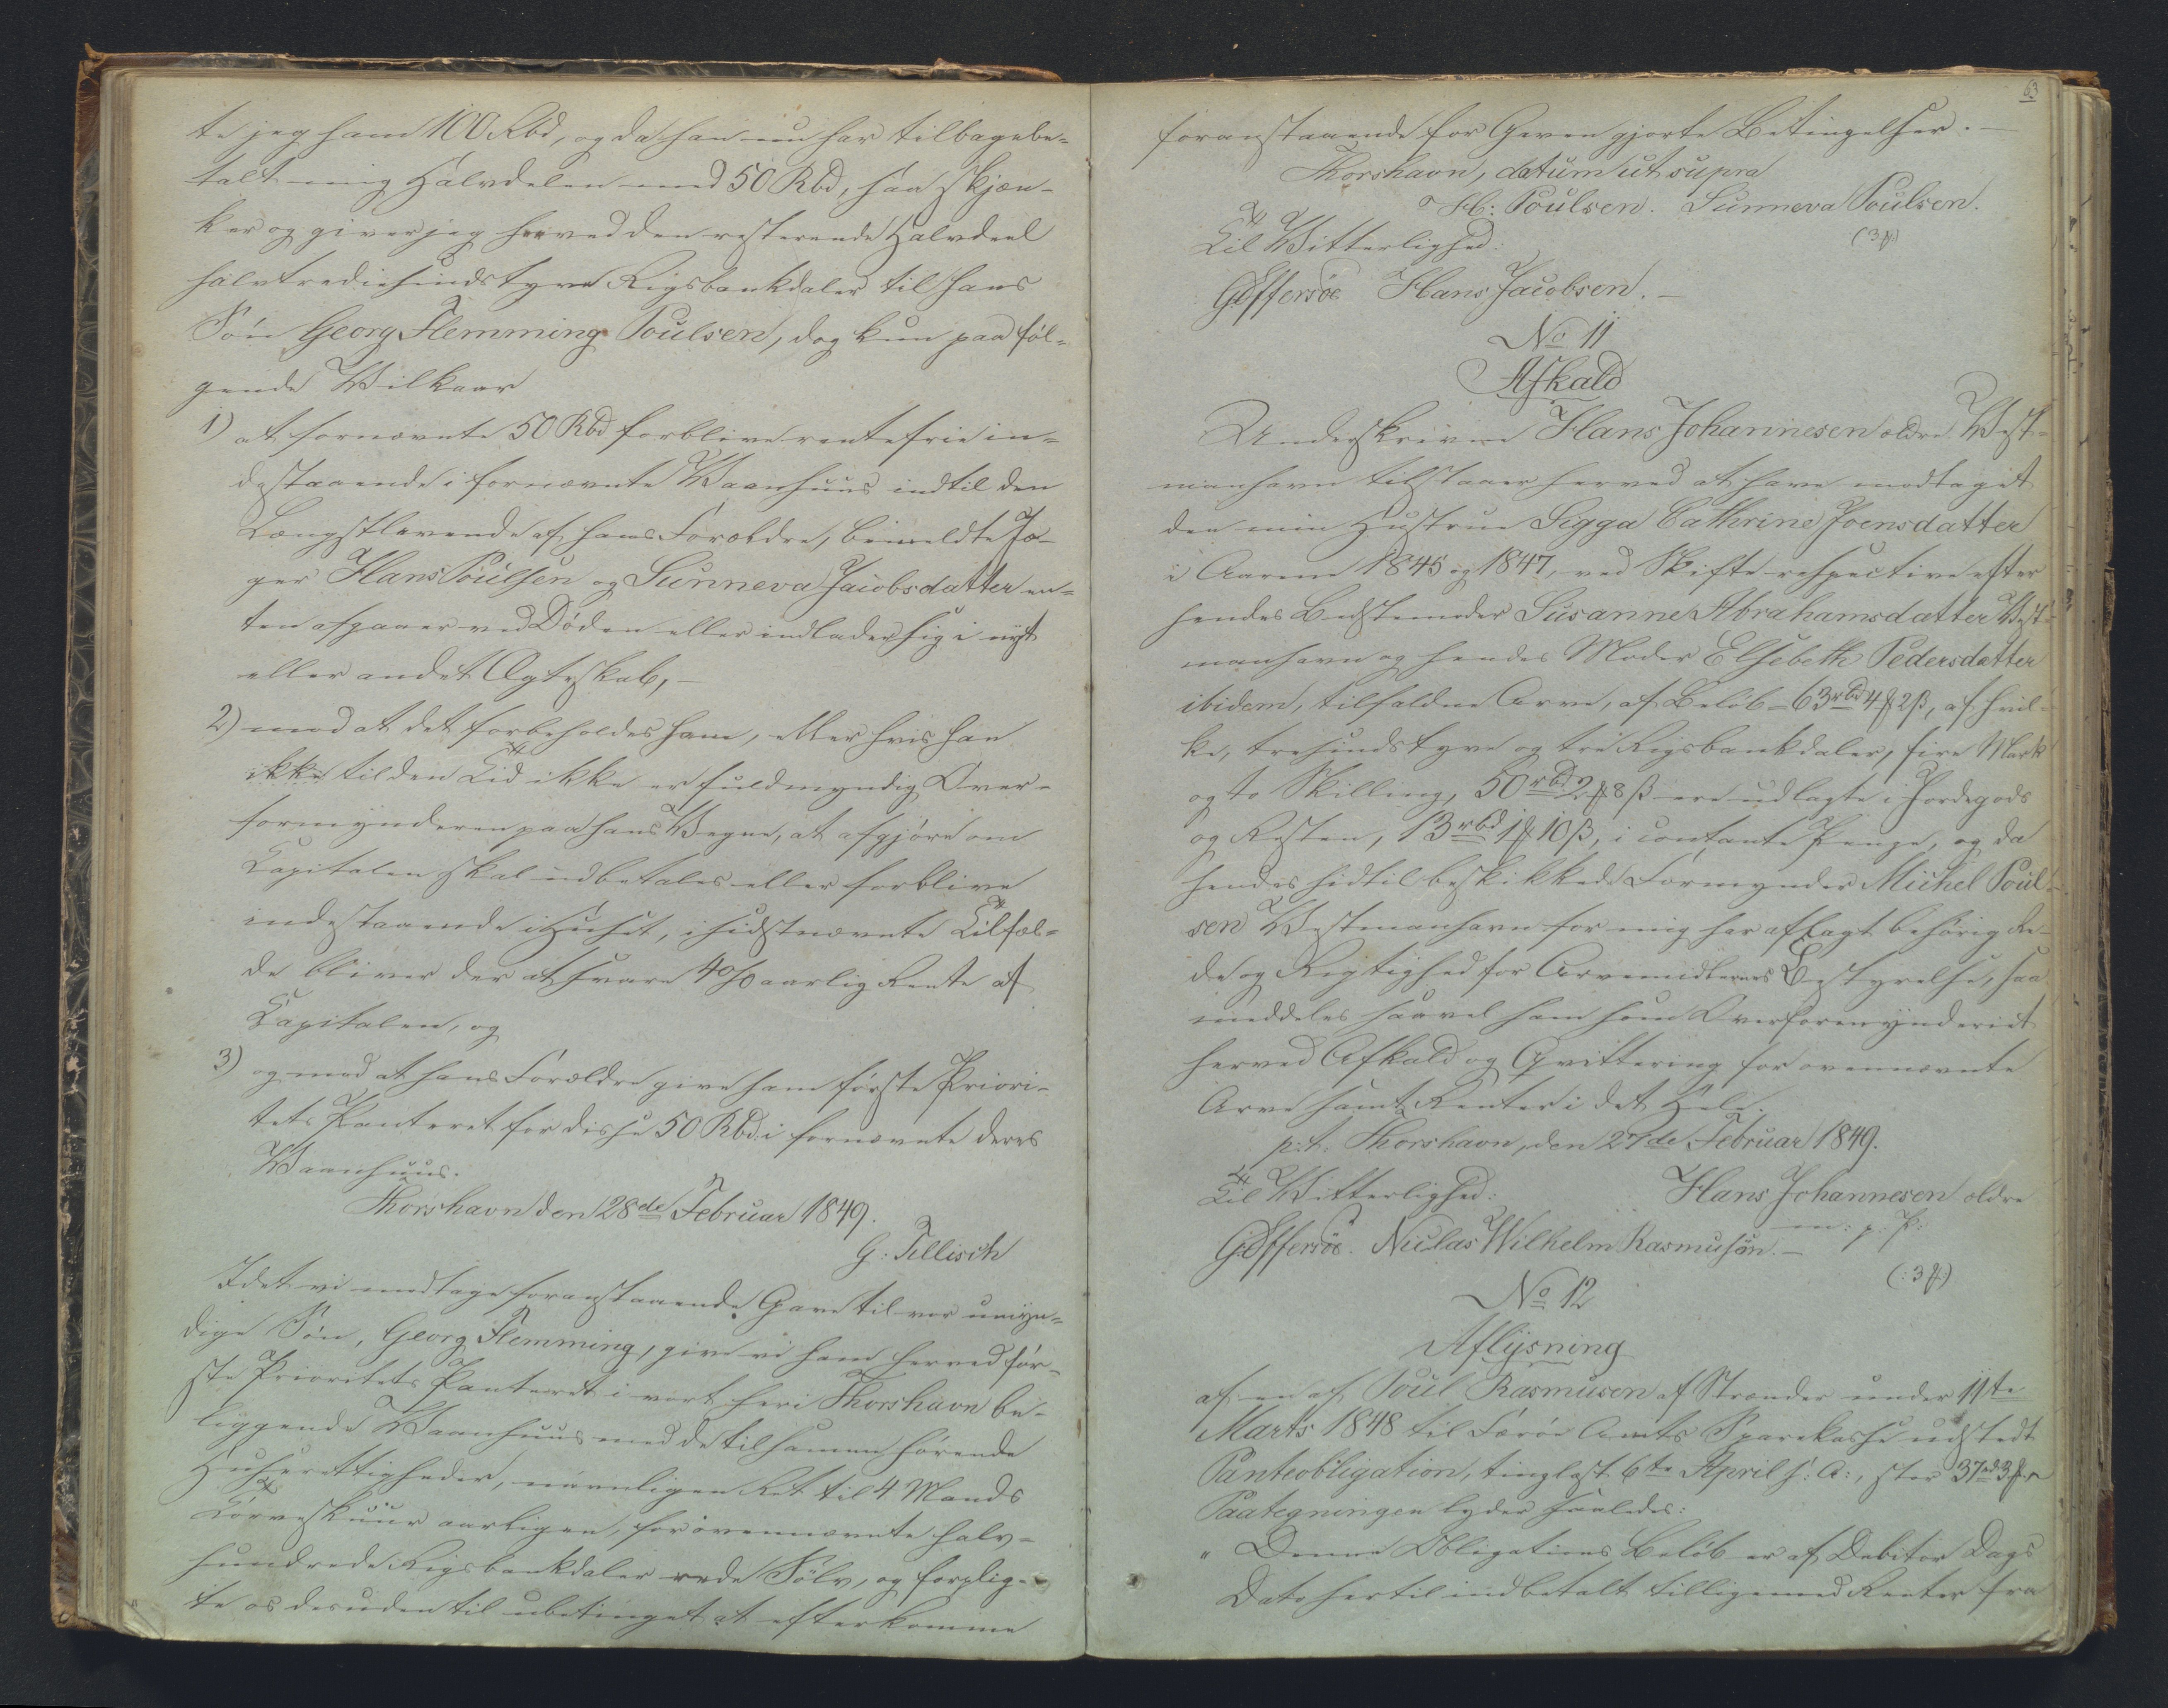 te jeg ham 100 Rbd, og da han nu har tilbagebe-
talt mig Halvdelen med 50 Rbd, saa skjæn-
ker og giver jeg herved den resterende Halvdeel
halvtrediesindstyve Rigsbankdaler til hans
Søn Georg Flemming Poulsen, dog kun paa føl-
gende Vilkaar
1) at fornævnte 50 Rbd forblive rentefrie in-
destaaende i fornævnte Vaanhuus indtil den
Længstlevende af hans Forældre, bemeldte Jæ-
ger Hans Poulsen og Sunneva Jacobsdatter en-
ten afgaaer ved Døden eller indlader sig i nyt
eller andet Ægteskab, -
2) mod at det forbeholdes ham, eller hvis han
ikke til den Tid ikke er fuldmyndig Over-
formynderen paa hans Vegne, at afgjøre om
Capitalen skal udbetales eller forblive
indestaaende i Huset, i sidstnævnte Tilfæl-
de bliver der at svare 4% aarlig Rente af
Capitalen, og
3) og mod at hans Forældre give ham første Priori-
tets Panteret for disse 50 Rbd i fornævnte deres
Vaanhuus.
Thorshavn den 28de Februar 1849.
G: Tillisch
Idet vi modtage foranstaaende Gave til vor umyn-
dige Søn, Georg Flemming, give vi ham herved før-
ste Prioritets Panteret i vort her i Thorshavn be-
liggende Vaanhuus med de tilsammen hørende
Huusrettigheder, navnligen Ret til 4 Mands
Tørveskuur aarligen, for ovennævnte halv-
hundrede Rigsbankdaler rede Sølv, og forplig-
te os desuden til ubetinget at efterkomme
63
foranstaaende for Gaven gjorte Betingelser. -
Thorshavn, datum ut supra
H: Poulsen. Sunneva Poulsen.
Til Vitterlighed: (3 ß)
G Effersöe Hans Jacobsen. -
No 11
Afkald
Underskrevne Hans Johannesen ældre Vest-
manhavn tilstaaer herved at have modtaget
den min Hustrue Sigga Cathrine Joensdatter
i Aarene 1845 og 1847, ved Skifte respective efter
hendes Bedstemoder Susanne Abrahamsdatter Vest-
manhavn og hendes Moder Elsebeth Pedersdatter
ibidem, tilfaldne Arve, af Beløb = 63 rbd 4 ℔ 2 ß, af hvil-
ke, tresindstyve og tre Rigsbankdaler, fire Mark
og to Skilling, 50 rbd 2 ℔ 8 ß ere udlagte i Jordegods
og Resten, 13 rbd 1 ℔ 10 ß, i contante Penge, og da
hendes hidtil beskikkede Formynder Michel Poul-
sen Vestmanhavn for mig har aflagt behørig Re-
de og Rigtighed for Arvemidlernes Bestyrelse, saa
meddeles saavel ham som Overformynderiet
herved Afkald og Qvittering for ovennævnte
Arve samt Renter i det Hele.
p: t: Thorshavn, den 27de Februar 1849.
Til Vitterlighed: Hans Johannesen ældre
m: p: P:
G Effersöe. Niclas Wilhelm Rasmussen. -
(: 3 ß)
No 12
Aflysning
af en af Poul Rasmusen af Strænder under 11te
Marts 1848 til Færøe Amts Sparekasse udstedt
Panteobligation, tinglæst 6te April s: A:, stor 37 rd 3 ℔
Paategningen lyder saaledes:
" Denne Obligations Beløb er af Debitor Dags
Dato hertil indbetalt tilligemed Renter fra